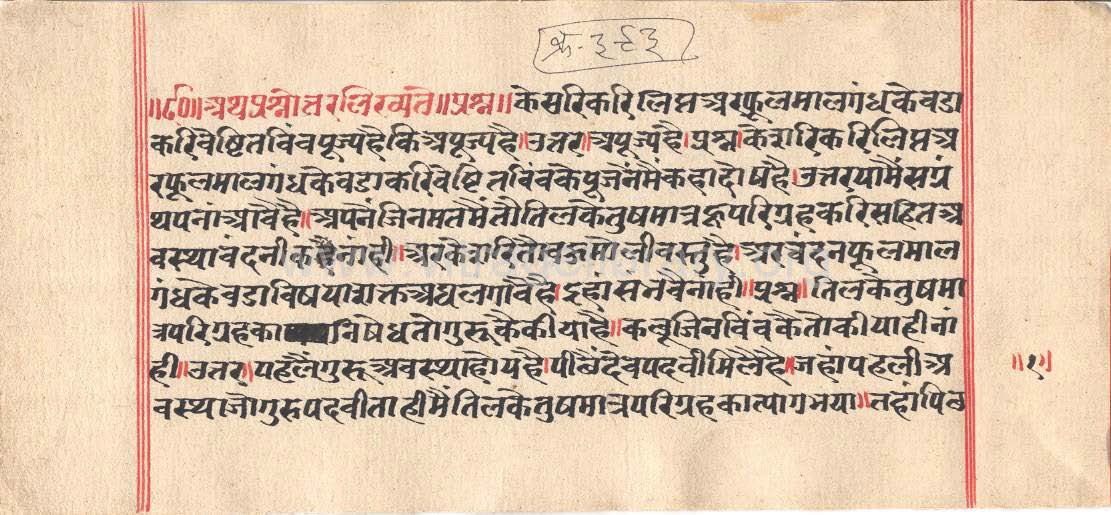 क्र-३९३
॥८०॥अथप्रश्नोत्तरलिख्यते॥प्रश्न॥केसरिकरिलिप्तअरफूलमालगंधकेवडा
करिवेष्टितविंवपूज्यहैकिअपूज्यहै।उत्तर॥अपूज्यंहै।प्रश्न।केशरिकरिलिप्तअ
रफूलमालगंधकेवडाकरिवेष्टितविंवकेपूजनेंमैंकहादोषहै।उत्तरयामैंसग्रं
थपनांआवैहै॥अपनैंजिनमतमैंतौतिलकैतुषमात्रहूपरिग्रहकरिसहितअ
वस्थावंदनीकहैनांही।अरकेशरितौवहुमोलीवस्तुहै।अरचंदनफूलमाल
गंधकेवडाविषयाशक्तअघलगावैहै।इहासनवैनांही॥प्रश्न॥तिलकेतुषमा
त्रपरिग्रहकानिषेधतोगुरूकैकीयाहै॥कछूजिनविंवकैतौकीयाहीनां
ही॥उत्तर॥पहलैंगुरूअवस्थाहोयहै।पीछैंदेवपदवीमिलैहै।जहांपहलीअ
वस्थाजोगुरुपदवीताहीमैंतिलकेतुषमात्रपरिग्रहकात्यागभया॥तहांपिछ
॥१॥